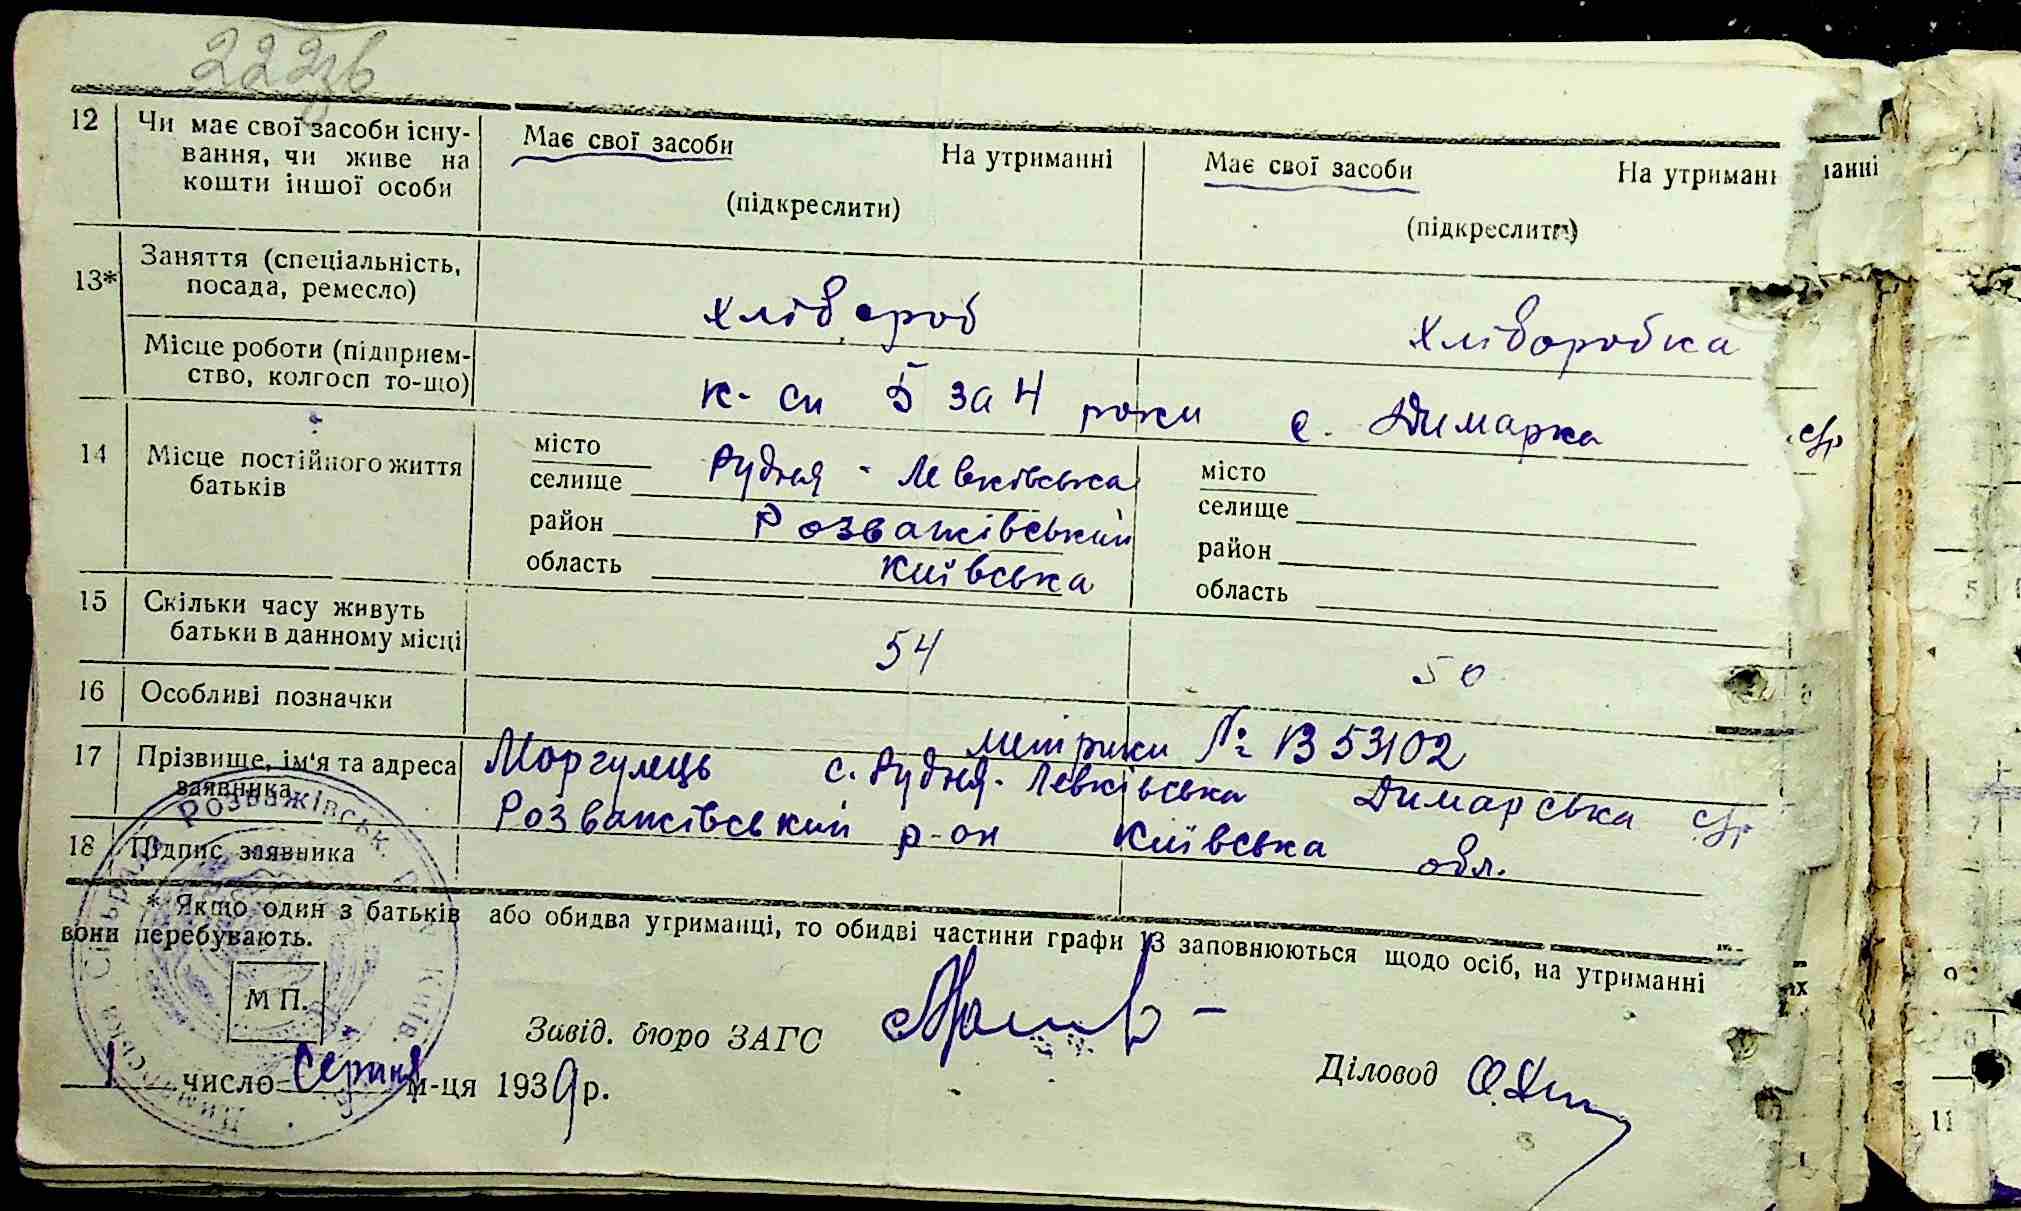 222зв
12 Чи має свої засоби існу- Має свої засоби На утриманні Має свої засоби На утриманн манні
вання, чи живе на
кошти іншої особи (підкреслити) (підкреслити)
13* Заняття (спеціальність,
посада, ремесло) хлібороб хліборобка
Місце роботи (підприєм-
ство, колгосп то-що) к-сп 5 за 4 роки с. Димарка с/р
14 Місце постійного життя
батьків
місто місто
селище Рудня - Левківська селище
район Розважівський район
область Київська область
15 Скільки часу живуть
батьки в данному місці 54 50
16 Особливі позначки Метрики № В 53102
17 Прізвище, ім'я та адреса Моргулець с. Рудня-Левківська Димарська с/р
заявника Розважівський р-он Київська обл.
18 Підпис заявника
* Якщо один з батьків або обидва утриманці, то обидві частини графи 13 заповнюються щодо осіб, на утриманні
вони перебувають.
М П.
Завід. бюро ЗАГС
Діловод
1 число Серпня м-ця 1939 р.
Розважівськ. Київ.
5
9
11